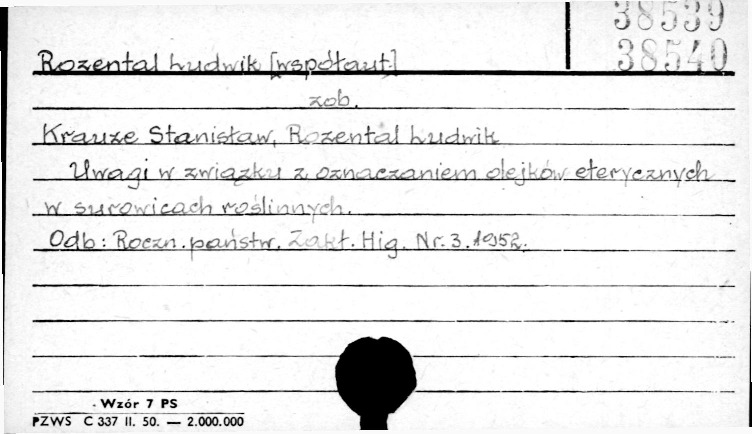 38539
38540
Rozental Ludwik [współaut.]
zob.
Krauze Stanisław, Rozental Ludwik
Uwagi w związku z oznaczaniem olejków eterycznych
w surowicach roślinnych.
Odb: Roczn. państw. Zakł. Hig. Nr. 3. 1952.
Wzór 7 PS
PZWS C 337 II. 50. — 2.000.000